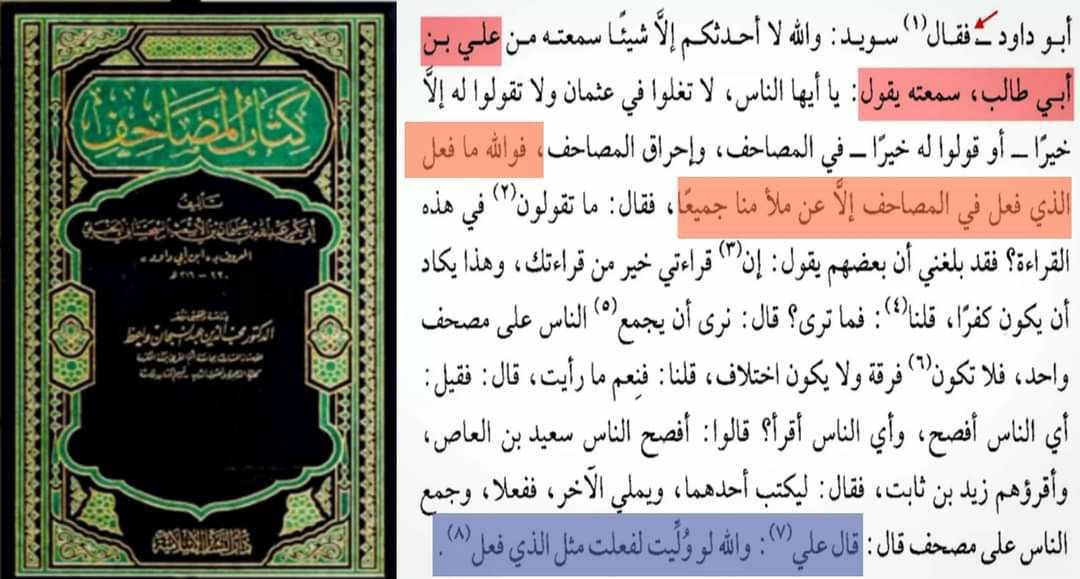 كتاب المصاحف
تأليف
المعروف بـ «ابن أبي داود»
٢٣٠ - ٣١٦ هـ
دراسة وتحقيق ونقد
الدكتور محب الدين عبد السبحان واعظ
دار البشائر الإسلامية
أبو داود ــ فقال(١) سويد: والله لا أحدثكم إلَّا شيئًا سمعته من علي بن
أبي طالب، سمعته يقول: يا أيها الناس، لا تغلوا في عثمان ولا تقولوا له إلَّا
خيرًا ــ أو قولوا له خيرًا ــ في المصاحف، وإحراق المصاحف، فوالله ما فعل
الذي فعل في المصاحف إلَّا عن ملأ منا جميعًا، فقال: ما تقولون(٢) في هذه
القراءة؟ فقد بلغني أن بعضهم يقول: إن(٣) قراءتي خير من قراءتك، وهذا يكاد
أن يكون كفرًا، قلنا(٤): فما ترى؟ قال: نرى أن يجمع(٥) الناس على مصحف
واحد، فلا تكون(٦) فرقة ولا يكون اختلاف، قلنا: فنِعم ما رأيت، قال: فقيل:
أي الناس أفصح، وأي الناس أقرأ؟ قالوا: أفصح الناس سعيد بن العاص،
وأقرؤهم زيد بن ثابت، فقال: ليكتب أحدهما، ويملي الآخر، ففعلا، وجمع
الناس على مصحف قال: قال علي(٧): والله لو وُلِّيت لفعلت مثل الذي فعل(٨).